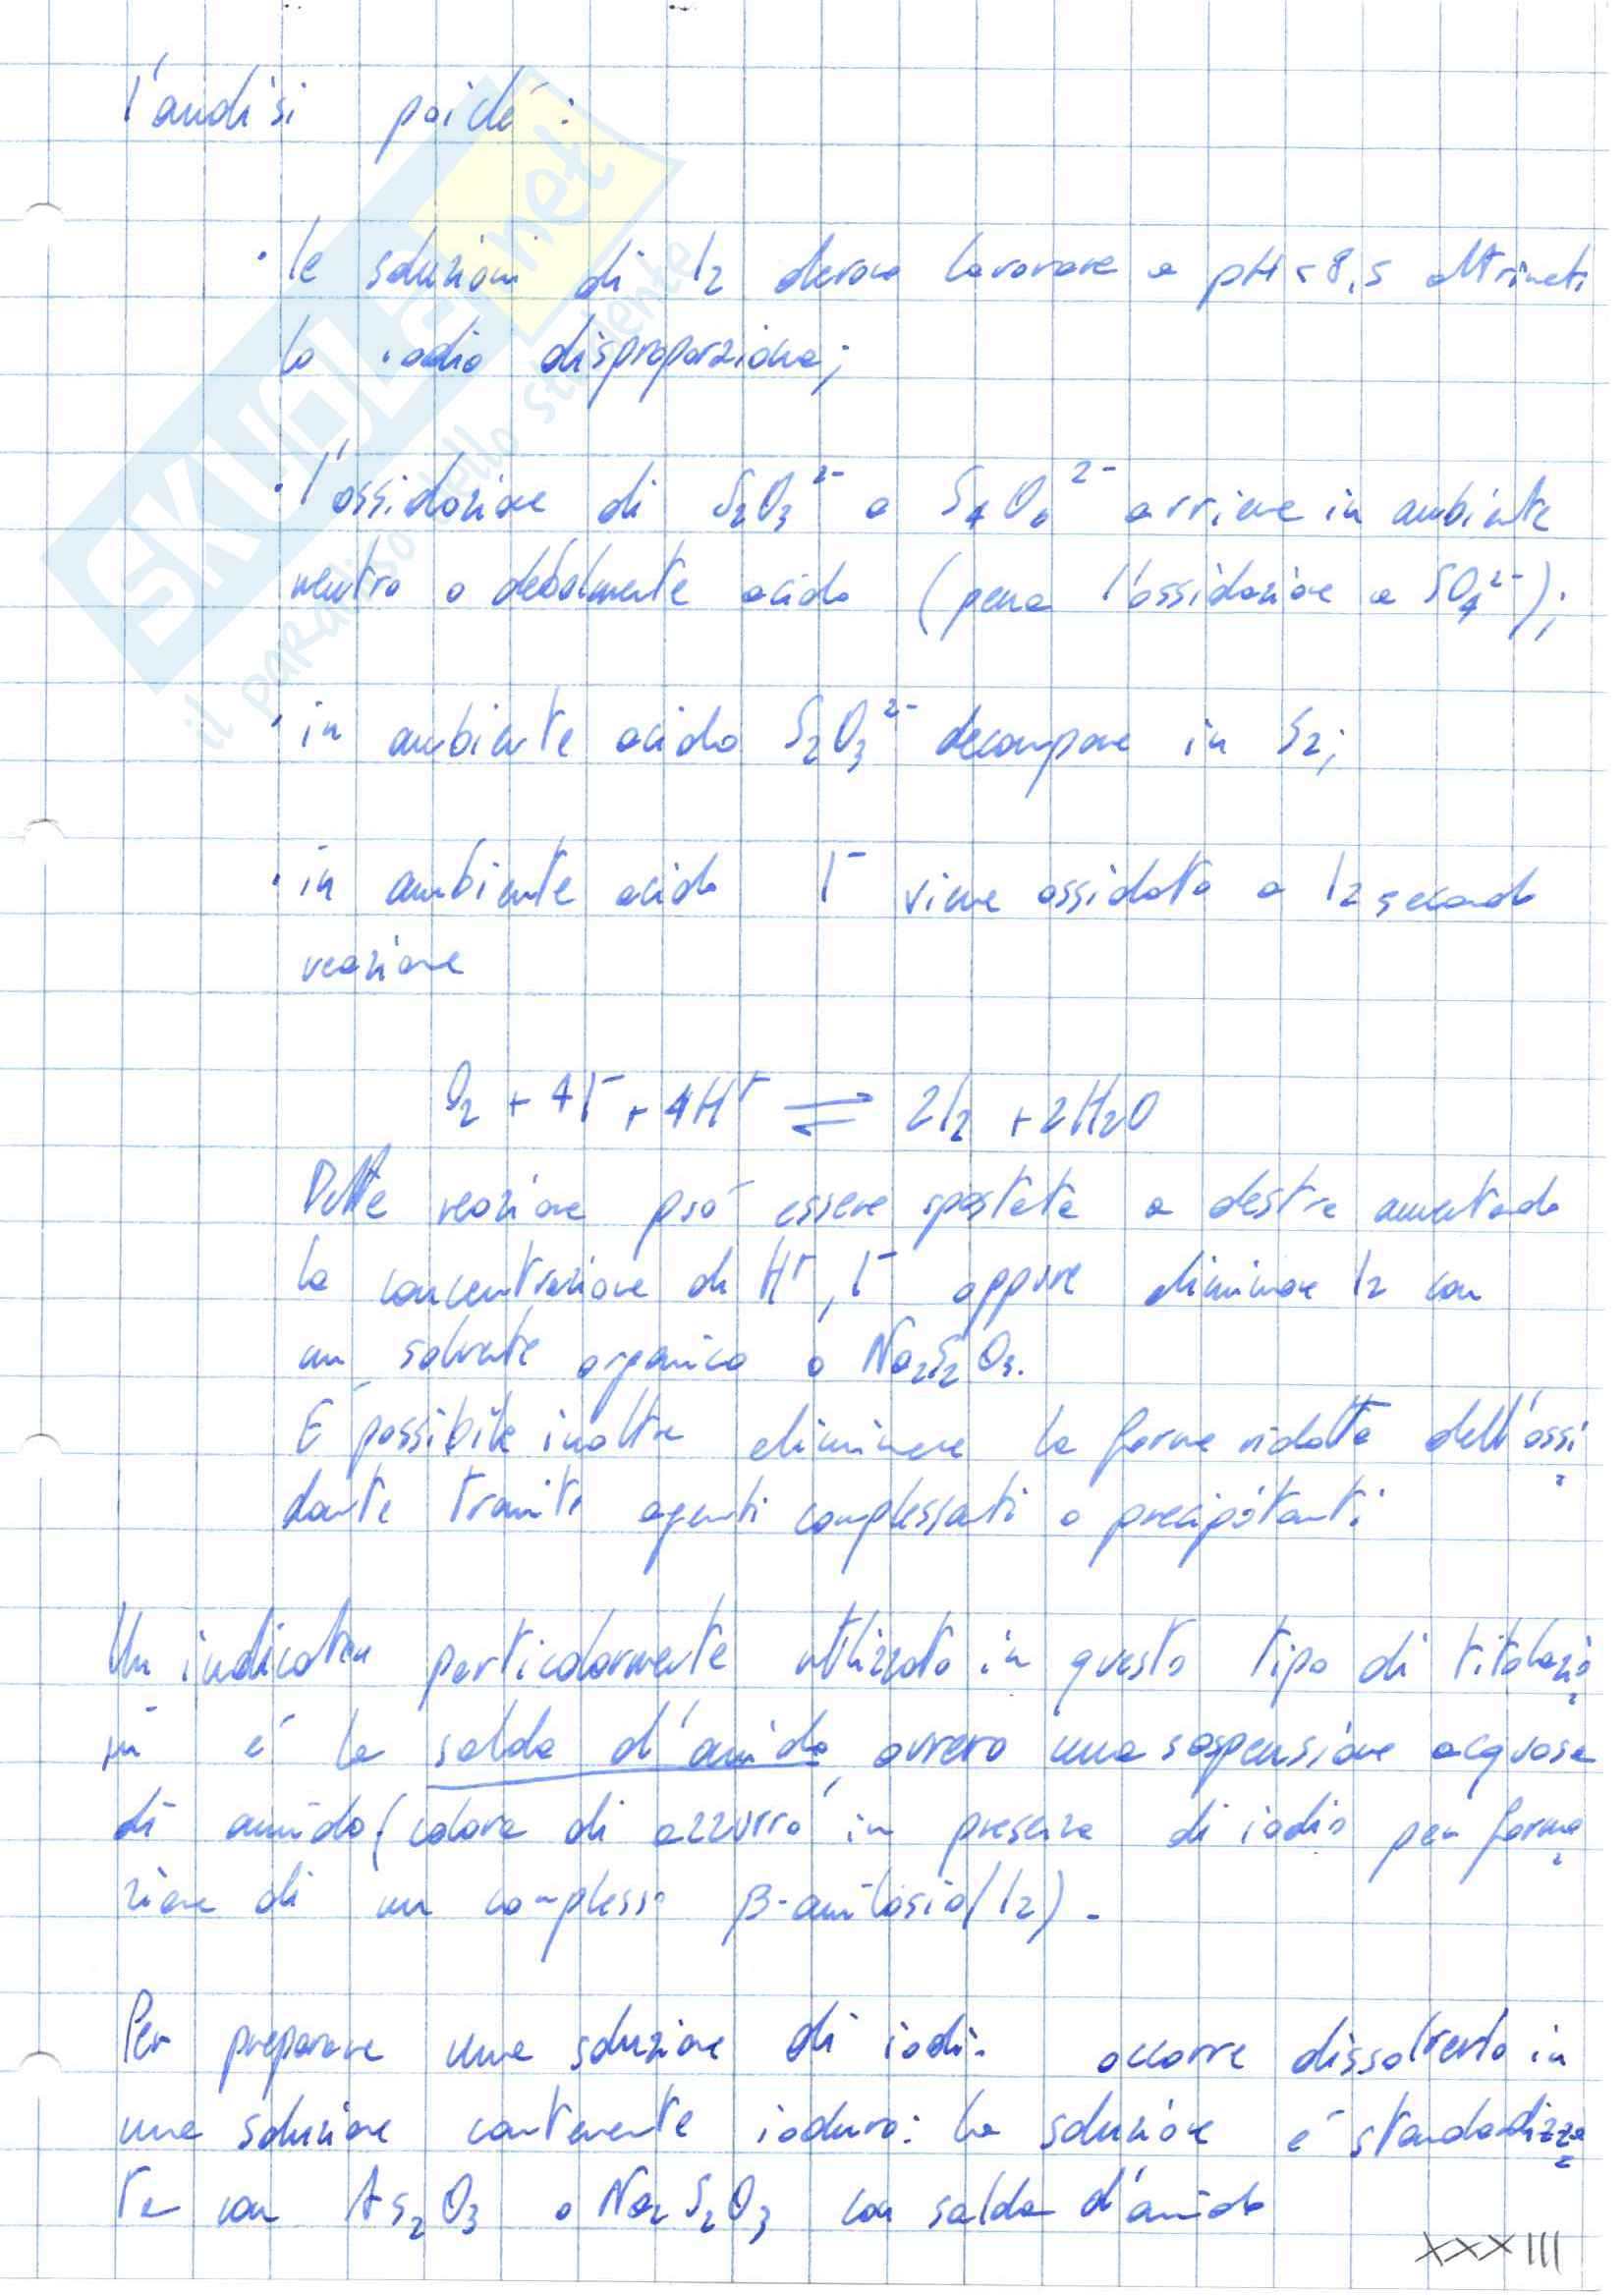 l'analisi poiché:
· le soluzioni di I2 devono lavorare a pH < 8,5 altrimenti
lo iodio disproporziona;
· l'ossidazione di S2O3 2- a S4O6 2- avviene in ambiente
neutro o debolmente acido (pena l'ossidazione a SO4 2-);
· in ambiente acido S2O3 2- decompone in S2;
· in ambiente acido I- viene ossidato a I2 secondo
reazione
O2 + 4I- + 4H+ ⇌ 2I2 + 2H2O
Detta reazione può essere spostata a destra aumentando
la concentrazione di H+, I- oppure eliminare I2 con
un solvente organico o Na2S2O3.
È possibile inoltre eliminare la forma ridotta dell'ossi
dante tramite agenti complessanti o precipitanti
Un indicatore particolarmente utilizzato in questo tipo di titolazio
ni é la salda d'amido, ovvero una sospensione acquosa
di amido (colora di azzurro in presenza di iodio per forma
zione di un complesso β-amilosio/I2).
Per preparare una soluzione di iodio occorre dissolverlo in
una soluzione contenente ioduro: la soluzione é standardizza
ta con As2O3 o Na2S2O3 con salda d'amido
XXXIII
SKUOLA.net
il paradiso dello studente